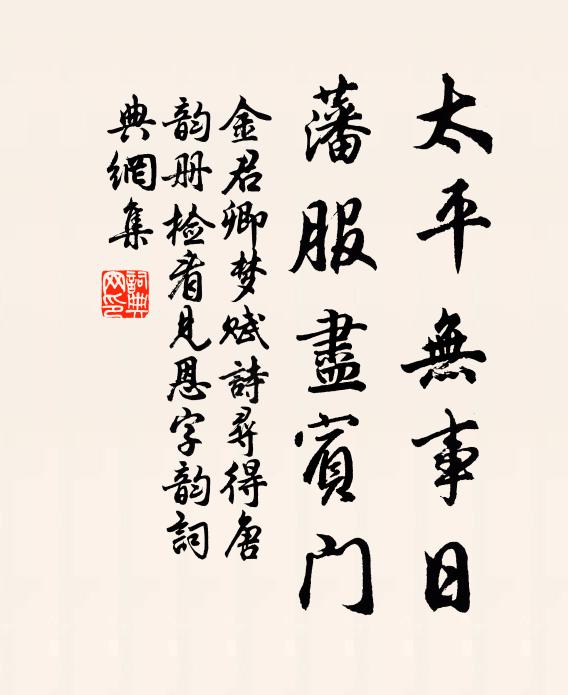 太平無事日
藩服盡賓門
金君卿梦赋詩尋得唐
韵册檢看見恩字韵詞
典網集
詞典网印